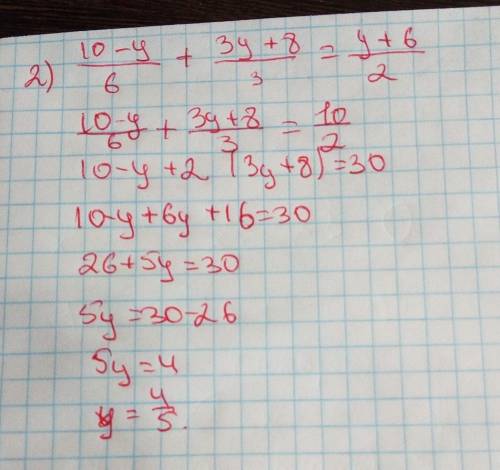 2) (10-y)/6 + (3y+8)/3 = (y+6)/2
(10-y)/6 + (3y+8)/3 = 10/2
10-y+2 (3y+8)=30
10-y+6y+16=30
26+5y=30
5y=30-26
5y=4
y = 4/5.